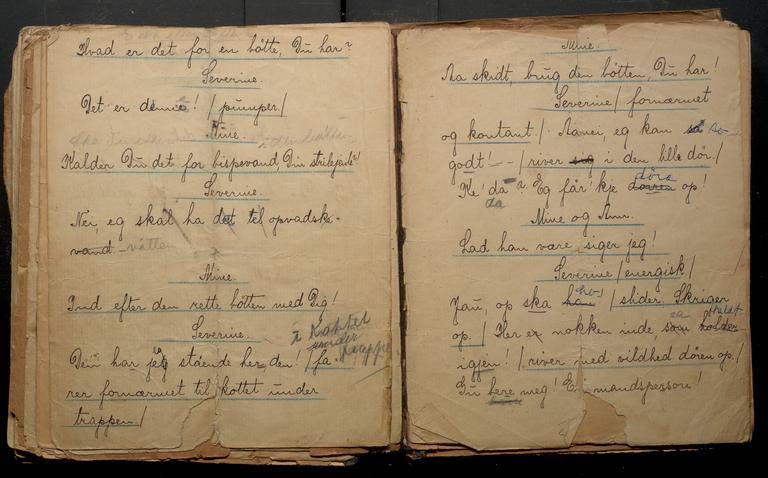 Hvad er det for en bötte, Du har?
Severine.
Det er denna! /pumper/
Mine.
Kalder Du det for bispevand, Din strilejente?
Severine.
Nei, eg skal ha det til opvadsks-
vand
Mine.
Ind efter den rette bötten med Dig!
Severine.
Den har jeg stående her den! /fa-
rer fornærmet til kottet under
trappen./
i Kottet
under
trappe
Mine.
Aa skidt, brug den bötten, Du har!
Severine /fornærmet
og kontant/ Aanei, eg kan so
godt! -- /river i den lille dör./
Ke' da? Eg får' kje döra op!
da
Mine og Ann.
Lad han være siger jeg!
Severine /energisk/
Jau, op ska ho /slider. Skriger
op./ Her er nokken inde, som holder
igjen! /river med vildhed dören op./
Du bere meg! E' mandspersson!